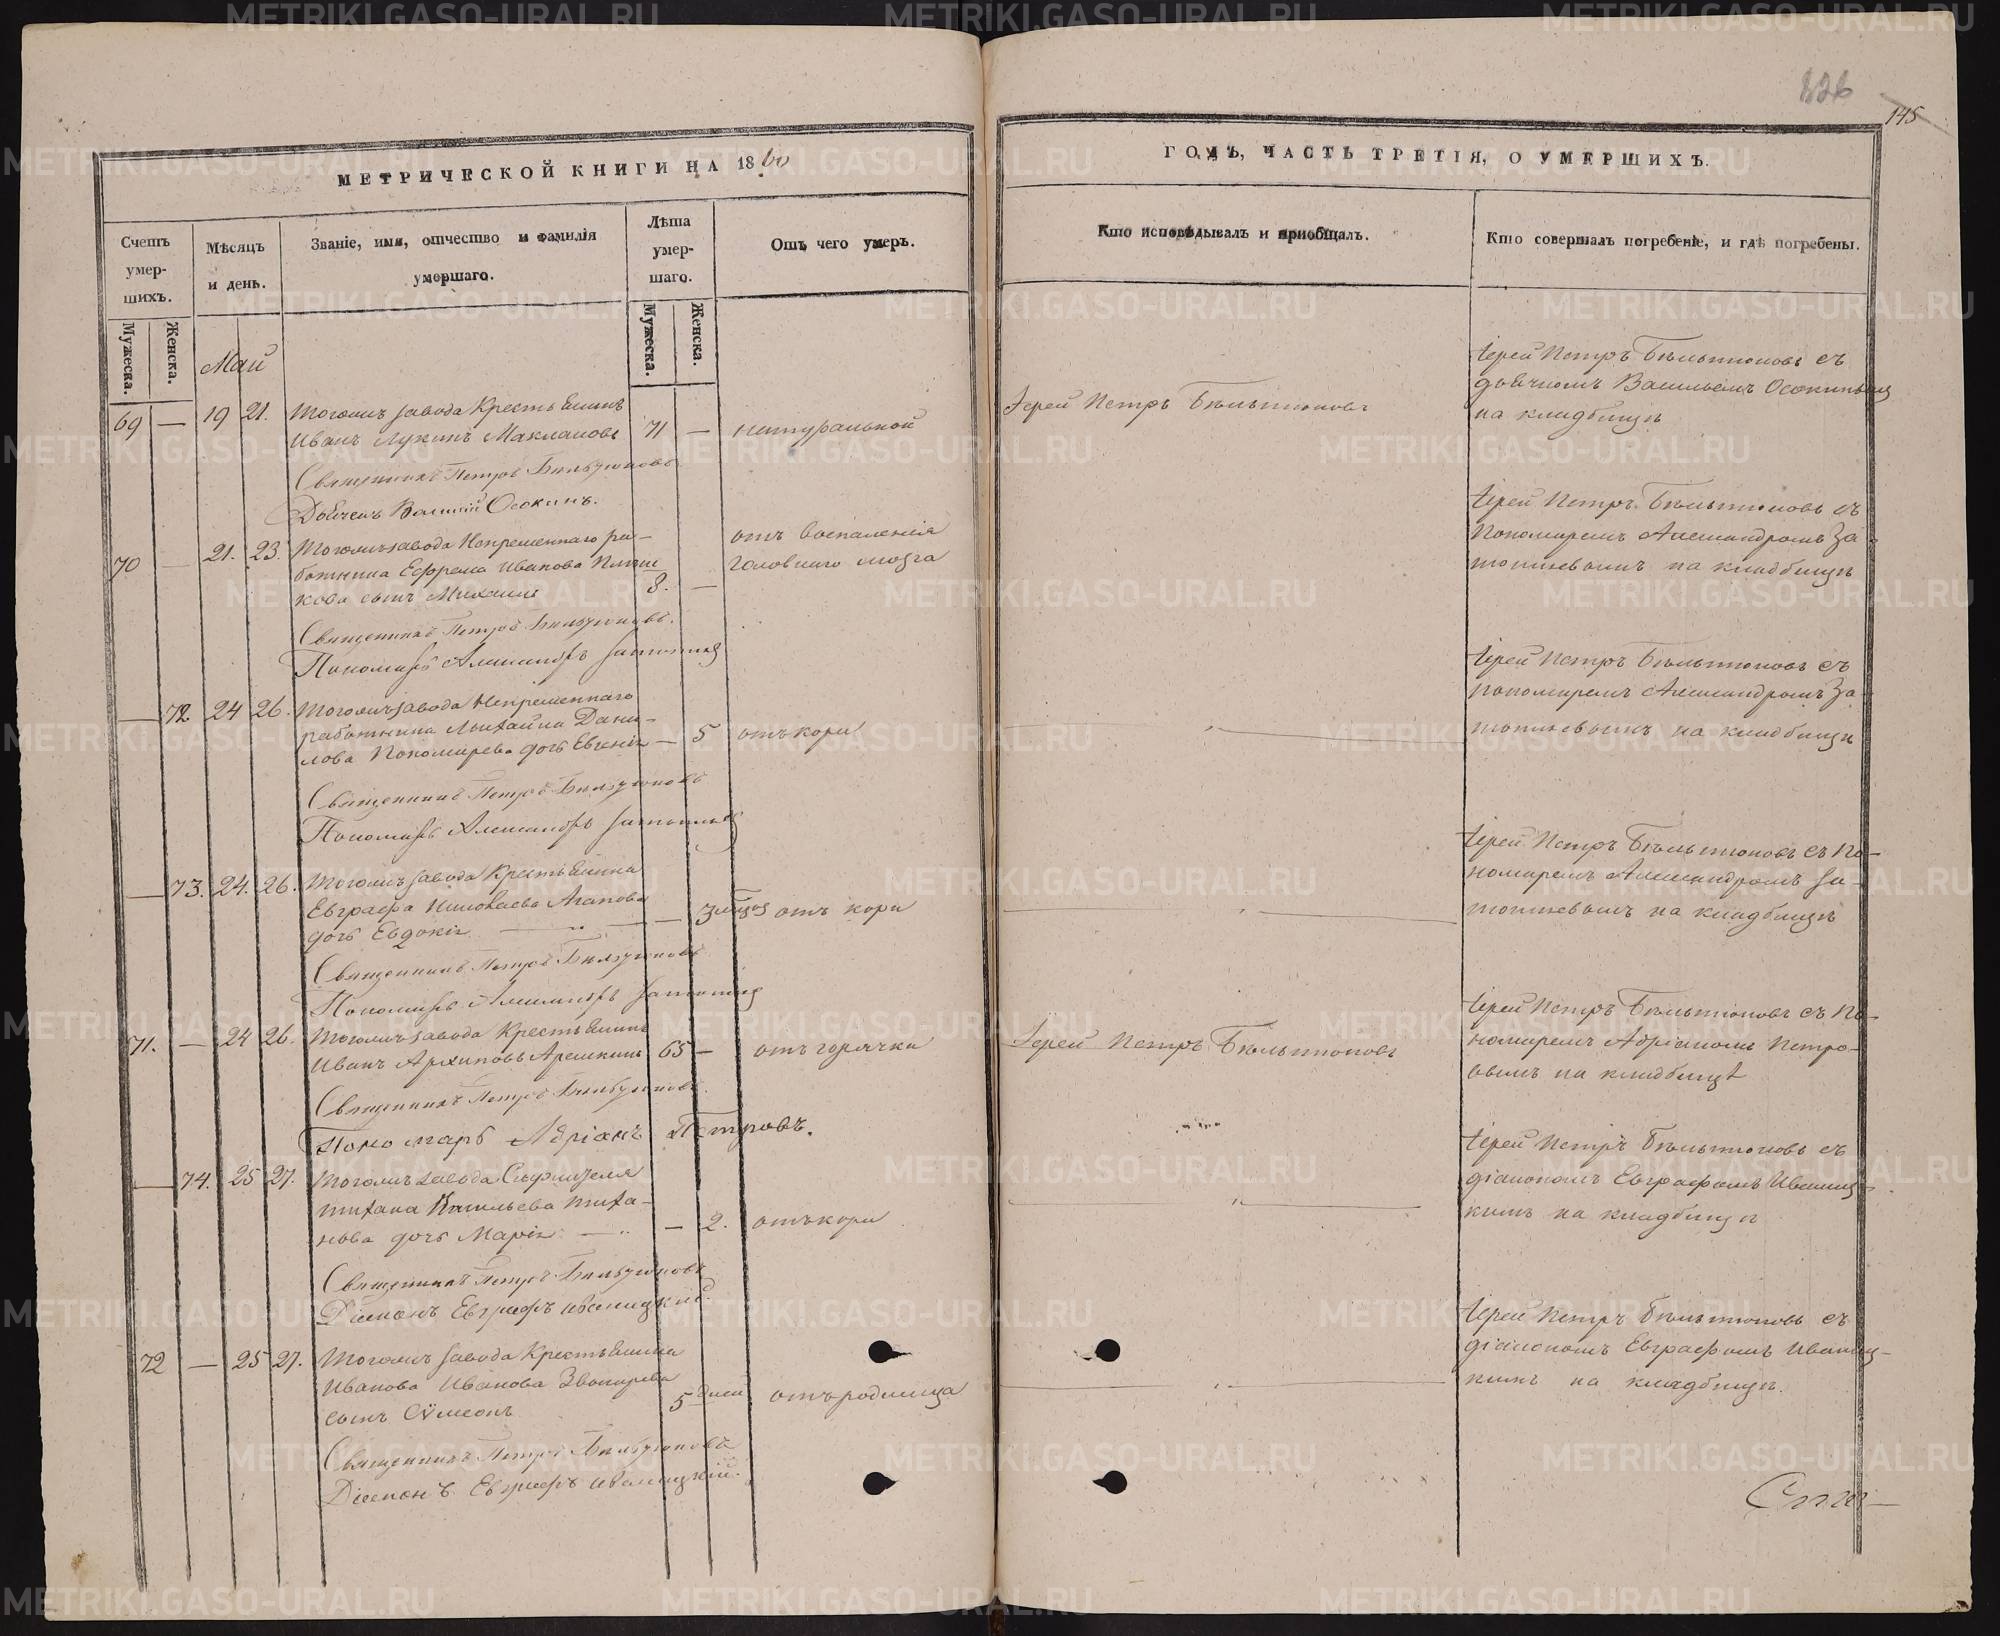 826
145
МЕТРИЧЕСКОЙ КНИГИ НА 1860
ГОДЪ, ЧАСТЬ ТРЕТІЯ, О УМЕРШИХЪ.
Счетъ умер-шихъ.
Мужеска.
Женска.
Мѣсяцъ и день.
Званіе, имя, отчество и фамилія умершаго.
Лѣта умер-шаго.
Мужеска.
Женска.
Отъ чего умеръ.
Кто исповѣдывалъ и пріобщалъ.
Кто совершалъ погребеніе, и гдѣ погребены.
Май
69 — 19 21. Тогожъ завода Крестьянинъ
Иванъ Лукинъ Маклаковъ 71 — натуральной
Іерей Петръ Бѣльтюковъ
Іерей Петръ Бѣльтюковъ съ
дьячкомъ Васильемъ Осокинымъ
на кладбищѣ
Священникъ Петръ Бѣльтюковъ
Дьячекъ Василій Осокинъ.
70 — 21. 23. Тогожъ завода Непременнаго ра-
ботника Ефрема Иванова
кова сынъ Михаилъ 8. —
отъ воспаленія
головнаго мозга
Іерей Петръ Бѣльтюковъ съ
Пономаремъ Александромъ За-
топляевымъ на кладбищѣ
Священникъ Петръ Бѣльтюковъ.
Пономарь Александръ
— 72. 24 26. Тогожъ завода Непременнаго
работника Михаила Дани-
лова Пономарева дочь Евгенія — 5 отъ кори
Іерей Петръ Бѣльтюковъ съ
пономаремъ Александромъ За-
топляевымъ на кладбищѣ
Священникъ Петръ Бѣльтюковъ
Пономарь Александръ
— 73. 24. 26. Тогожъ завода Крестьянина
Евграфа Николаева Агапова
дочь Евдокія — 3 мѣсяц отъ кори
Іерей Петръ Бѣльтюковъ съ По-
номаремъ Александромъ За-
топляевымъ на кладбищѣ
Священникъ Петръ Бѣльтюковъ
Пономарь Александръ
71. — 24 26. Тогожъ завода Крестьянинъ
Иванъ Архиповъ Арешкинъ 65 — отъ горячки
Іерей Петръ Бѣльтюковъ
Іерей Петръ Бѣльтюковъ съ По-
номаремъ Адріаномъ Петро-
вымъ на кладбищѣ
Священникъ Петръ Бѣльтюковъ.
Пономарь Адріанъ Петровъ.
— 74. 25 27. Тогожъ завода
Тихана Васильева Тиха-
нова дочь Марія — 2. отъ кори
Іерей Петръ Бѣльтюковъ съ
діакономъ Евграфомъ Иваниц-
кимъ на кладбищѣ
Священникъ Петръ Бѣльтюковъ
Діаконъ Евграфъ Иваницкій.
72 — 25 27. Тогожъ завода Крестьянина
Иванова Иванова
сынъ Сѵмеонъ 5 дней отъ родимца
Іерей Петръ Бѣльтюковъ съ
діакономъ Евграфомъ Иваниц-
кимъ на кладбищѣ.
Священникъ Петръ Бѣльтюковъ
Діаконъ Евграфъ Иваницкій.
METRIKI.GASO-URAL.RU